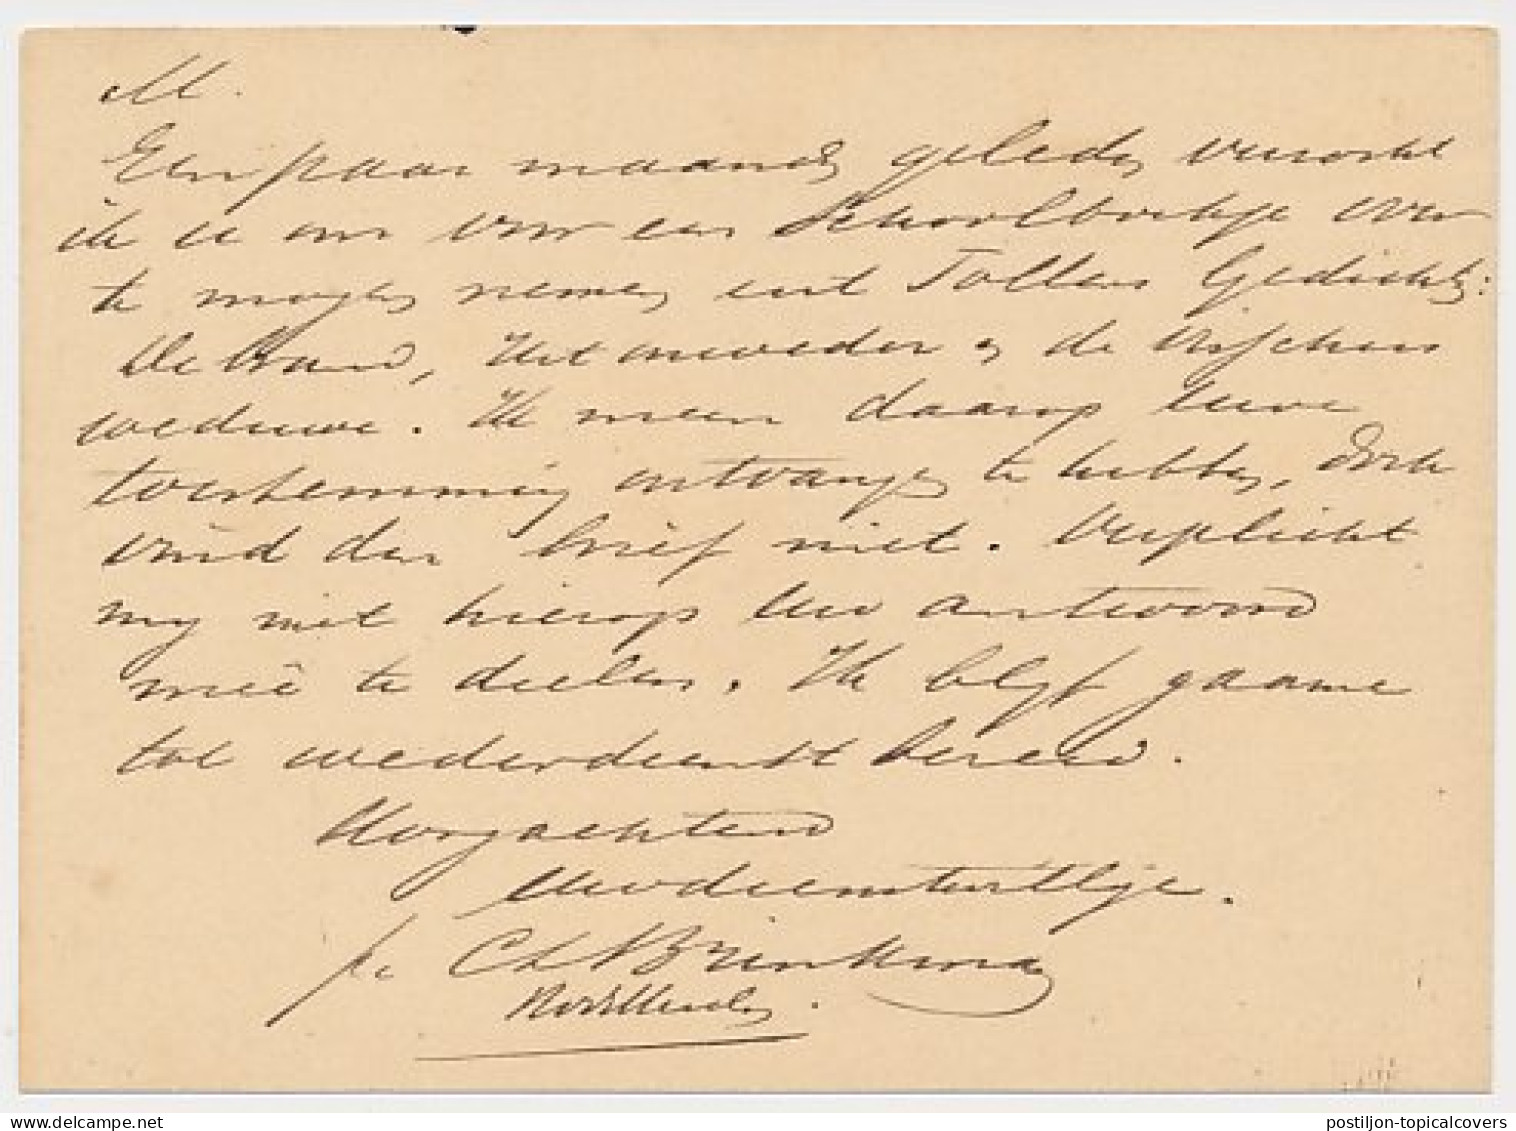 M.
Een paar maanden geleden verzocht
ik u om voor een Schoolboekje over
te mogen nemen uit Tollens Gedichten:
De brand, Het onweder & de
weduwe. Ik meen daarop Uwe
toestemming ontvangen te hebben, doch
vind den brief niet. Verplicht
my met hierop Uw antwoord
meê te deelen. Ik blyf gaarne
tot wederdienst bereid.
Hoogachtend
Uwdienstwillige.
pr C L Brinkman
postiljon-topicalcovers